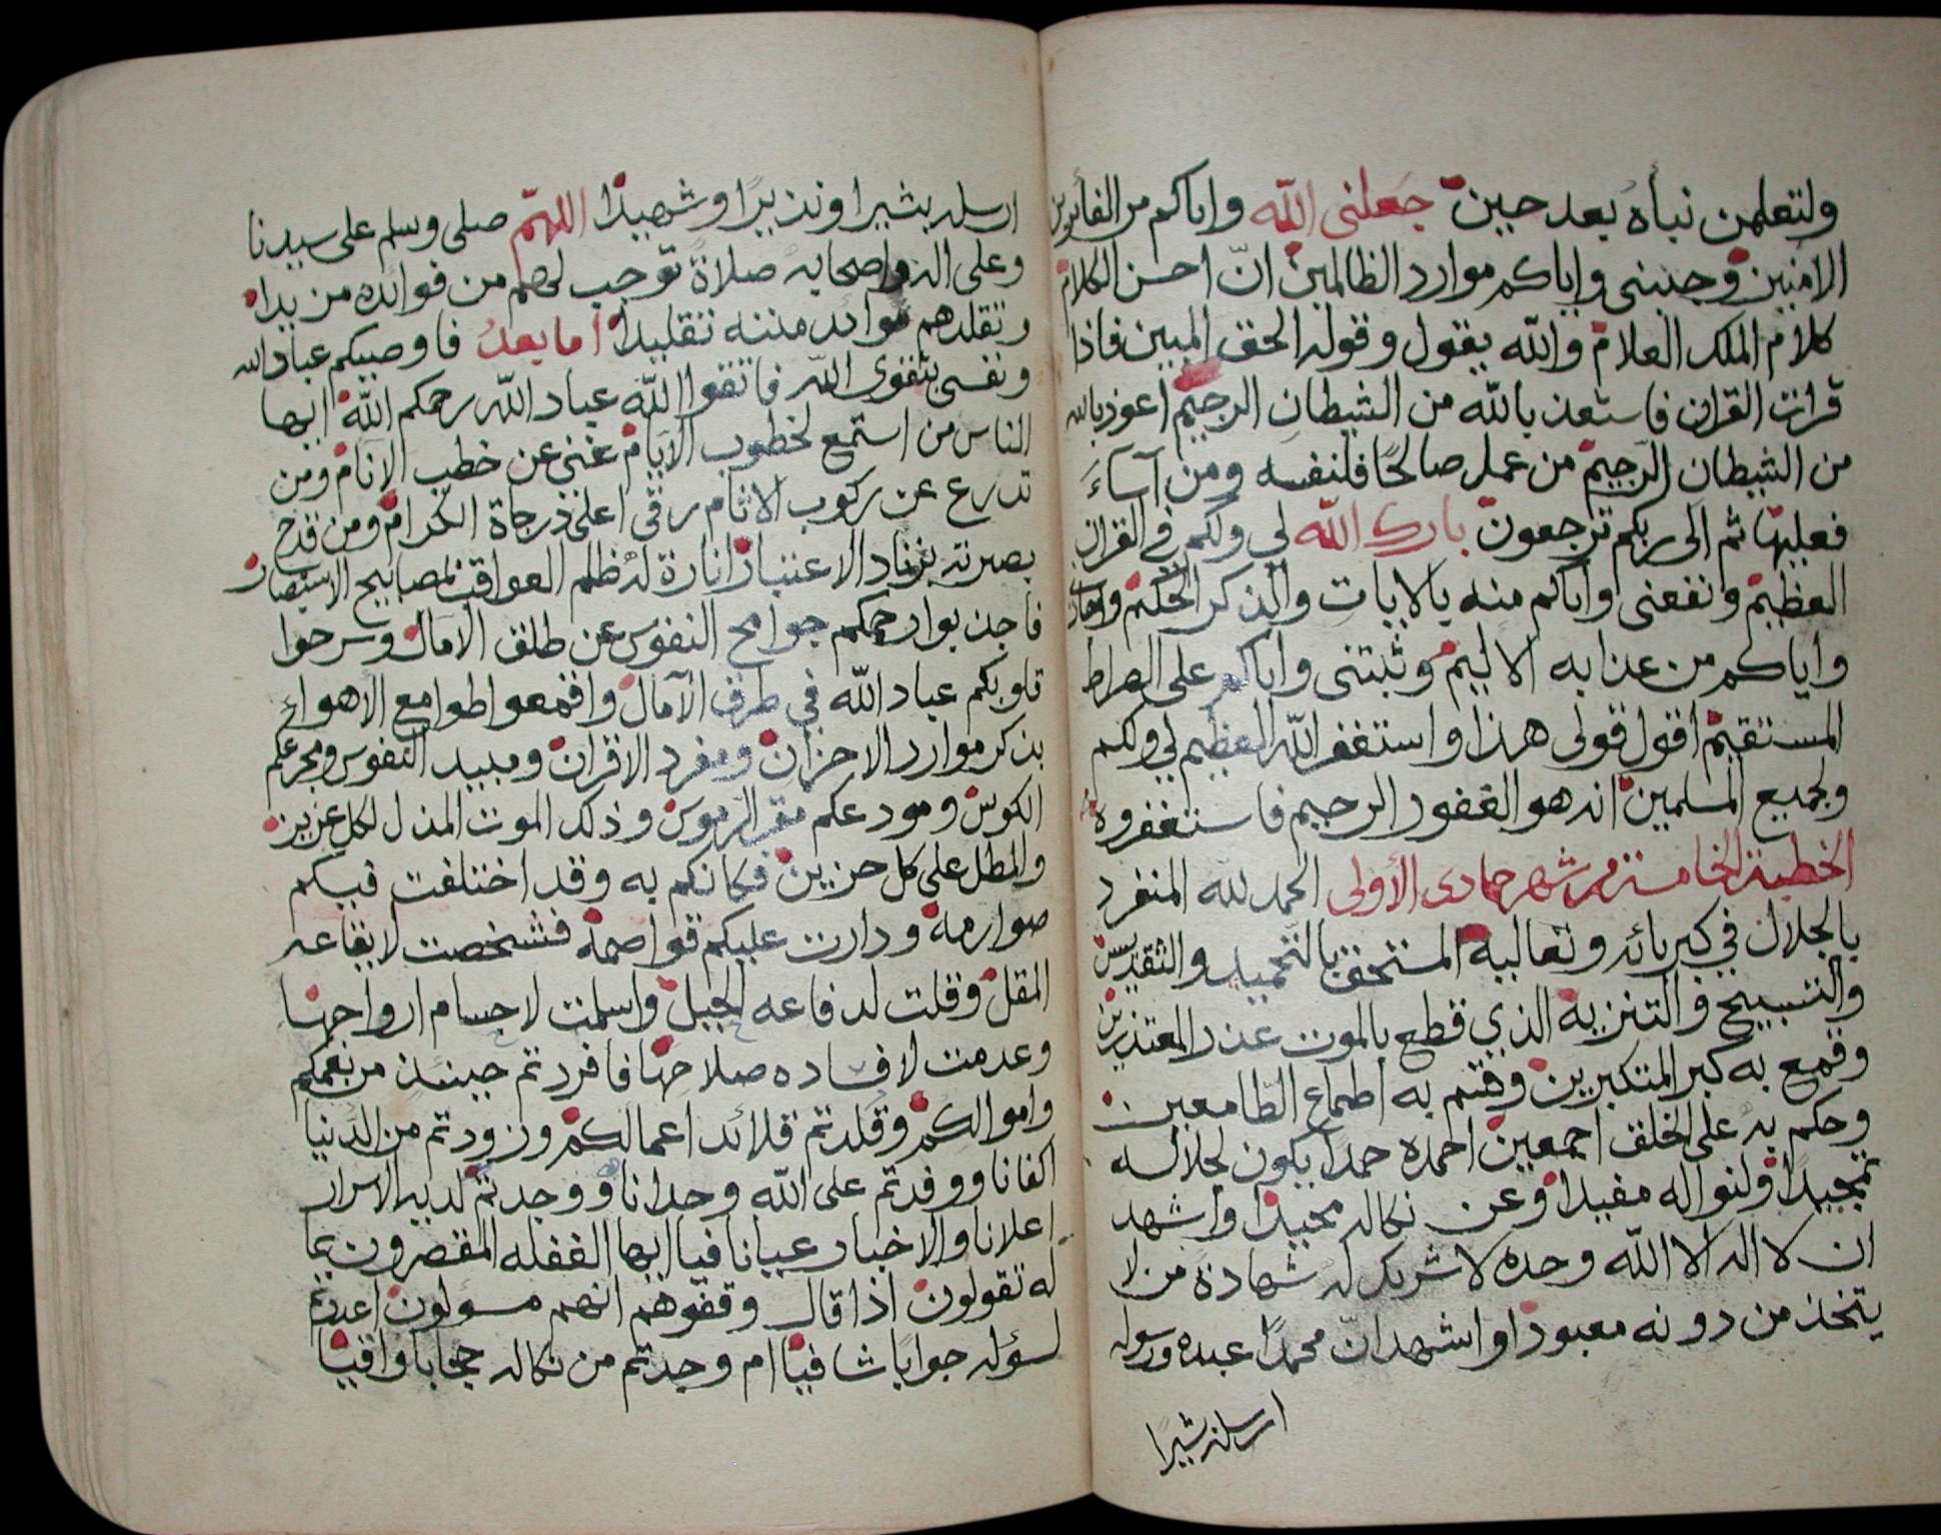 ولتعلمن نبأه بعد حين جعلني الله واياكم من الفائزين
الامنين وجنبني واياكم موارد الظالمين انّ احسن الكلام
كلام الملك العلام والله يقول وقوله الحق المبين فاذا
قرات القران فاستعذ بالله من الشيطان الرجيم اعوذ بالله
من الشيطان الرجيم من عمل صالحًا فلنفسه ومن آساءَ
فعليها ثم الى ربكم ترجعون بارك الله لي ولكم في القران
العظيم ونفعني واياكم منه بالايات والذكر الحكيم واجارني
واياكم من عذابه الاليم وثبتني واياكم على الصراط
المستقيم اقول قولى هذا واستغفر الله العظيم لي ولكم
ولجميع المسلمين انه هو الغفور الرحيم فاستغفروه
الخطبة الخامسة من شهر جمادى الأولى الحمد لله المنفرد
بالجلال في كبريائه وتعاليه المستحق بالتحميد والتقديس
والتسبيح والتنزيه الذي قطع بالموت عذر المعتذرين
وقمع به كبر المتكبرين وختم به اطماع الطامعين
وحكم به على الخلق اجمعين احمده حمدا يكون لجلاله
تمجيدا ولنواله مفيدا وعن نكاله محيدا واشهد
ان لا اله الا الله وحده لا شريك له شهادة من لا
يتخذ من دونه معبودا واشهد انّ محمدًا عبده ورسوله
ارسله بشيرا
ارسله بشيرا ونذيرًا وشهيدًا اللهمّ صلى وسلم على سيدنا
وعلى اله واصحابه صلاة توجب لهم من فوائده مزيدا
وتقلدهم موائد مننه تقليدًا اما بعدُ فاوصيكم عباد الله
ونفسى بتقوى الله فاتقوا الله عباد الله رحمكم الله ايها
الناس من استمع لخطوب الايام غني عن خطب الانام ومن
تدرع عن ركوب الاثام رقى اعلى درجاة الكرام ومن قدح
بصيرته بزناد الاعتبار انارة له ظلم العواقب لمصابيح الاستبصار
فاجذبوا رحمكم جوامح النفوس عن طلق الامال وسرحوا
قلوبكم عباد الله في طرف الآمال واقمعوا طوامع الاهواء
بذكر موارد الاحزان ومفرد الاقران ومبيد النفوس ومجرعكم
الكوس ومودعكم مقر الرموس وذلك الموت المذل لكل عزيز
والمطل على كل حزين فكانكم به وقد اختلفت فيكم
صوارمه ودارت عليكم قواصمه فشخصت لايقاعه
المقل وقلت لدفاعه الحيل واسلمت لاحسام ارواجها
وعدمت لافساده صلاحها فافردتم حينئذ من نعمكم
واموالكم وقلدتم قلائد اعمالكم وزودتم من الدنيا
اكفانا ووفدتم على الله وحدانا ووجدتم لديه الاسرار
اعلانا والاخبار عيانا فيا ايها الغفله المقصرون بما
له تقولون اذا قال وقفوهم انهم مسولون اعددتم
لسؤله جوابا شافيًا ام وجدتم من نكاله حجابا واقيًا